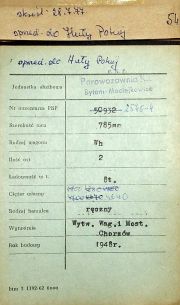 skreśl. 28.7.77
oprzed. do Huty Pokój
54
oprzed. do Huty Pokój
Jednostka służbowa
Parowozownia
Bytom Maciejkowice
Nr inwentarza PKP
50932 2545-4
Szerokość toru
785mm
Rodzaj wagonu
Wh
Ilość osi
2
Ładowność w t.
8t.
Ciężar własny
Rodzaj hamulca
ręczny
Wytwórnia
Wytw. Wag. i Most.
Chorzów
Rok budowy
1948r.